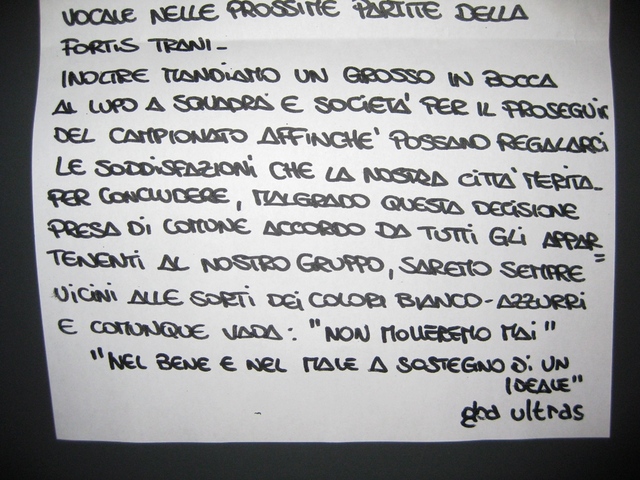 VOCALE NELLE PROSSIME PARTITE DELLA
FORTIS TRANI-
INOLTRE MANDIAMO UN GROSSO IN BOCCA
AL LUPO A SQUADRA E SOCIETA' PER IL PROSEGUIR
DEL CAMPIONATO AFFINCHE' POSSANO REGALARCI
LE SODDISFAZIONI CHE LA NOSTRA CITTA' MERITA-
PER CONCLUDERE, MALGRADO QUESTA DECISIONE
PRESA DI COMUNE ACCORDO DA TUTTI GLI APPAR=
TENENTI AL NOSTRO GRUPPO, SAREMO SEMPRE
VICINI ALLE SORTI DEI COLORI BIANCO-AZZURRI
E COMUNQUE VADA: "NON MOLLEREMO MAI"
"NEL BENE E NEL MALE A SOSTEGNO DI UN
IDEALE"
gba ultras